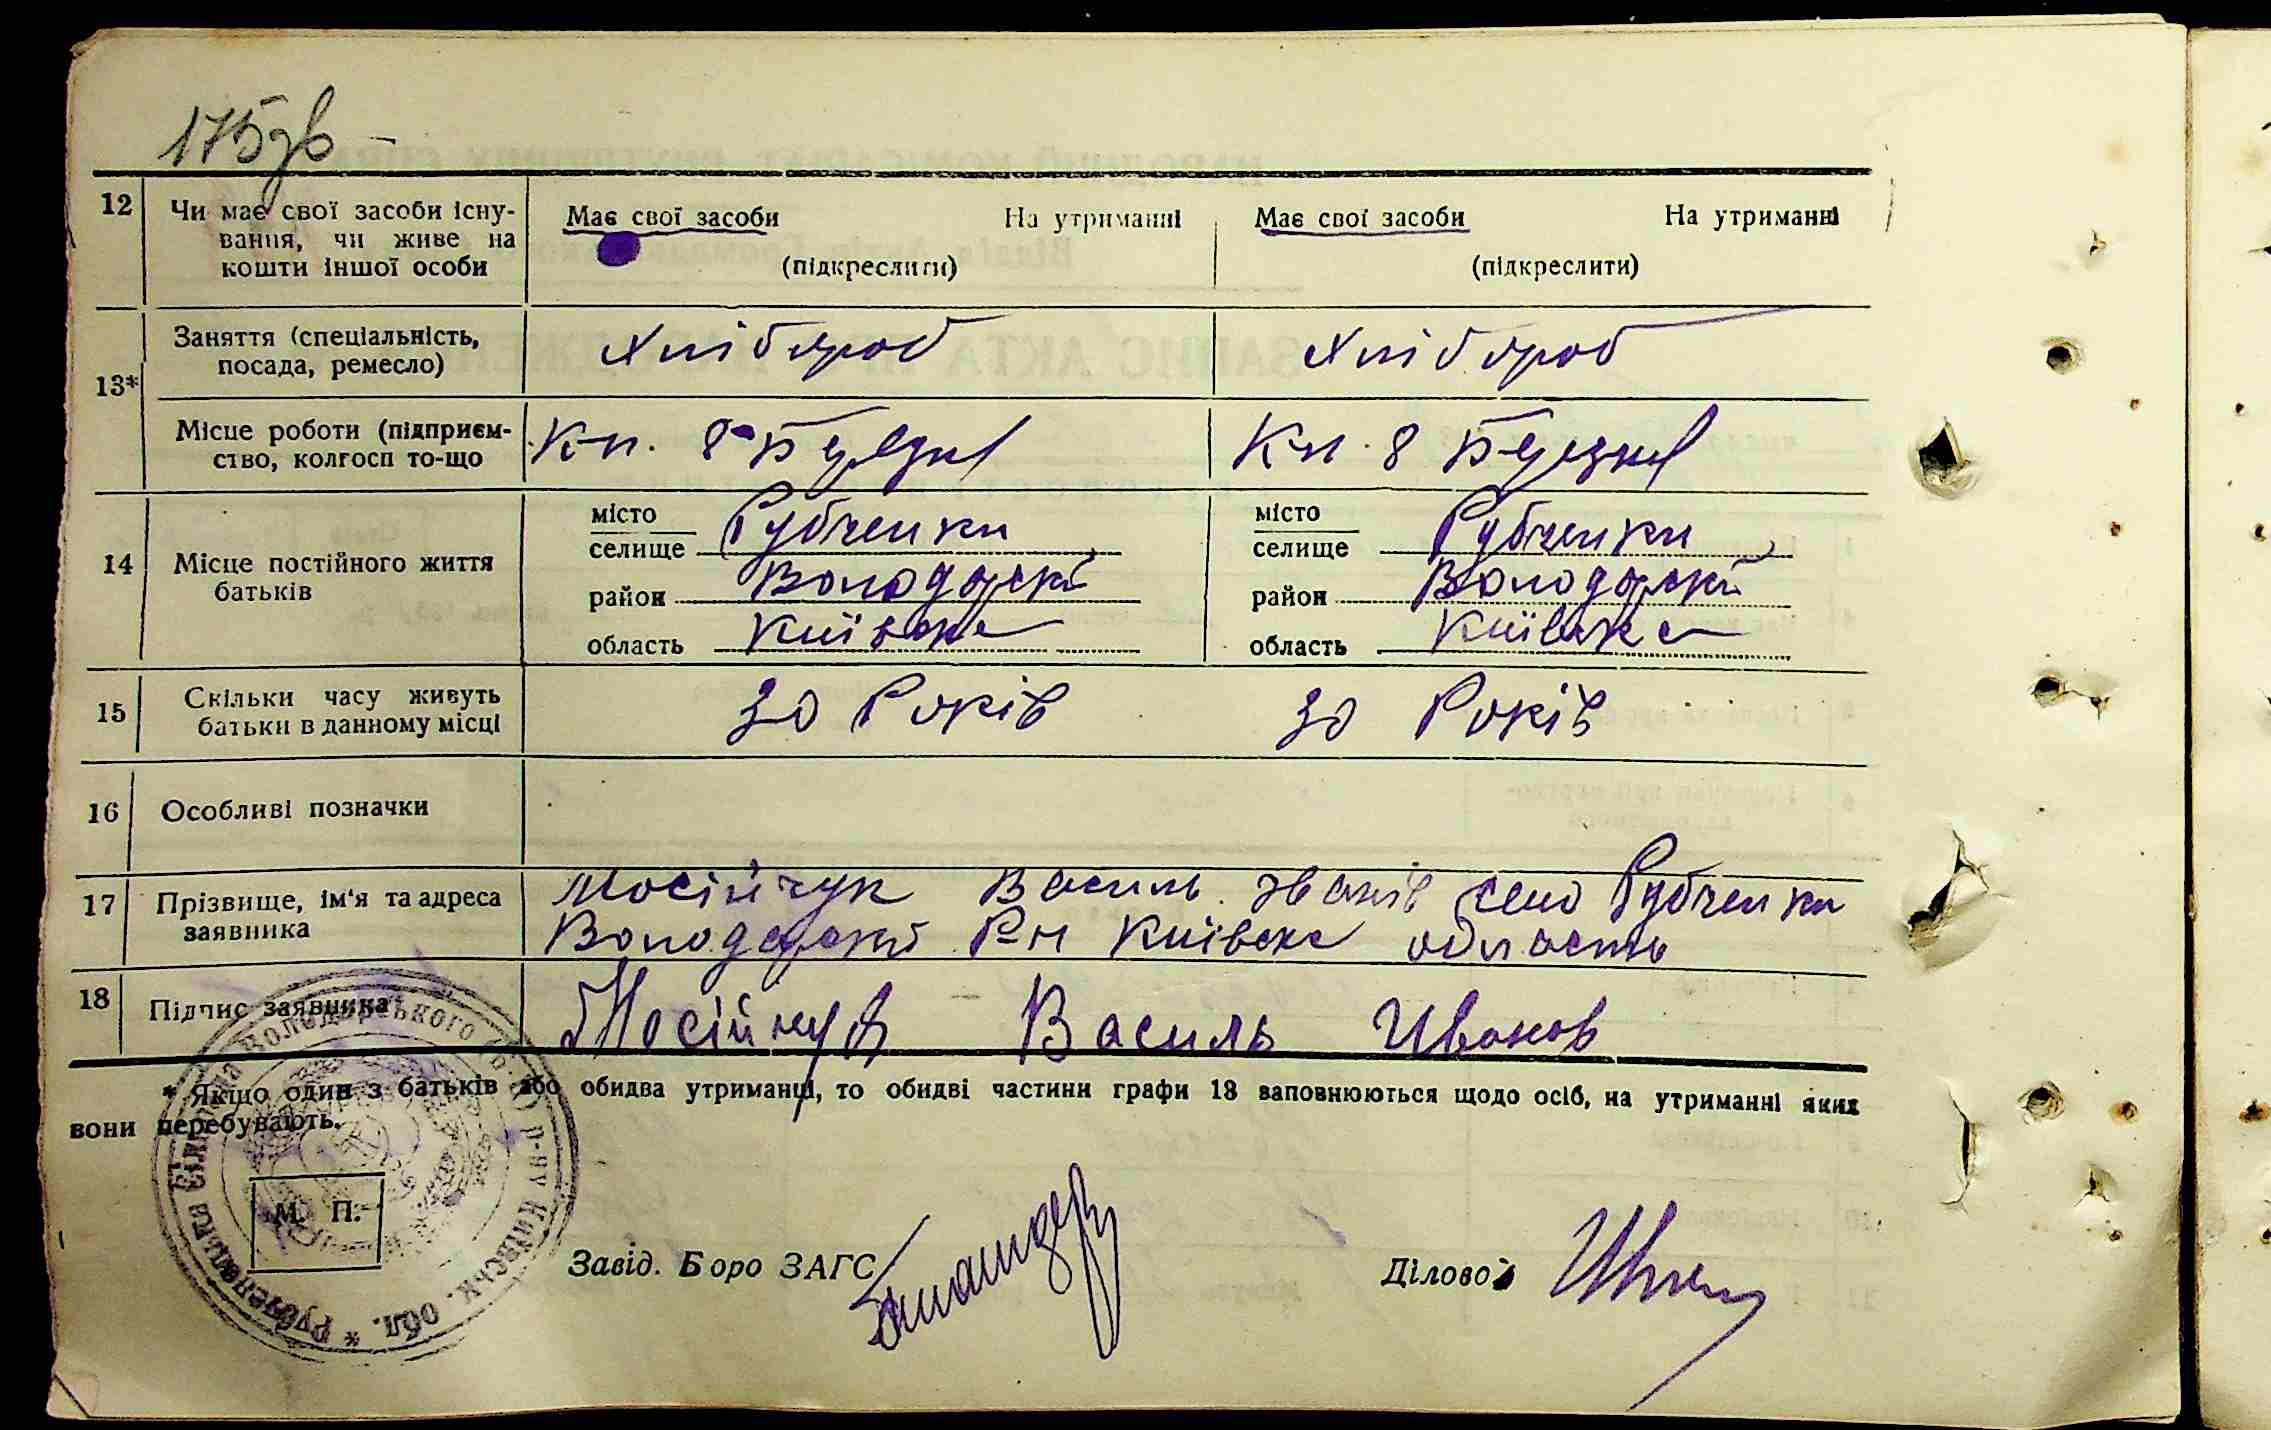 175зв
12 Чи має свої засоби існування, чи живе на кошти іншої особи
Має свої засоби На утриманні Має свої засоби На утриманні
(підкреслити) (підкреслити)
13* Заняття (спеціальність, посада, ремесло) Хлібороб Хлібороб
Місце роботи (підприємство, колгосп то-що Кп. 8 Кп. 8
14 Місце постійного життя батьків
місто місто
селище Рубченки селище Рубченки
район Володарскй район Володарскй
область Київска область Київска
15 Скільки часу живуть батьки в данному місці 30 Років 30 Років
16 Особливі позначки
17 Прізвище, ім'я та адреса заявника Мосійчук Василь село Рубченки
Володарский Р-н Київска область
18 Підпис заявника Мосійчук Василь Иванов
* Якщо один з батьків або обидва утриманці, то обидві частини графи 13 заповнюються щодо осіб, на утриманні яких
вони перебувають.
М. П.
Завід. Боро ЗАГС Діловод
Рубченська Сільрада Володарського р-ну Київськ. обл. *